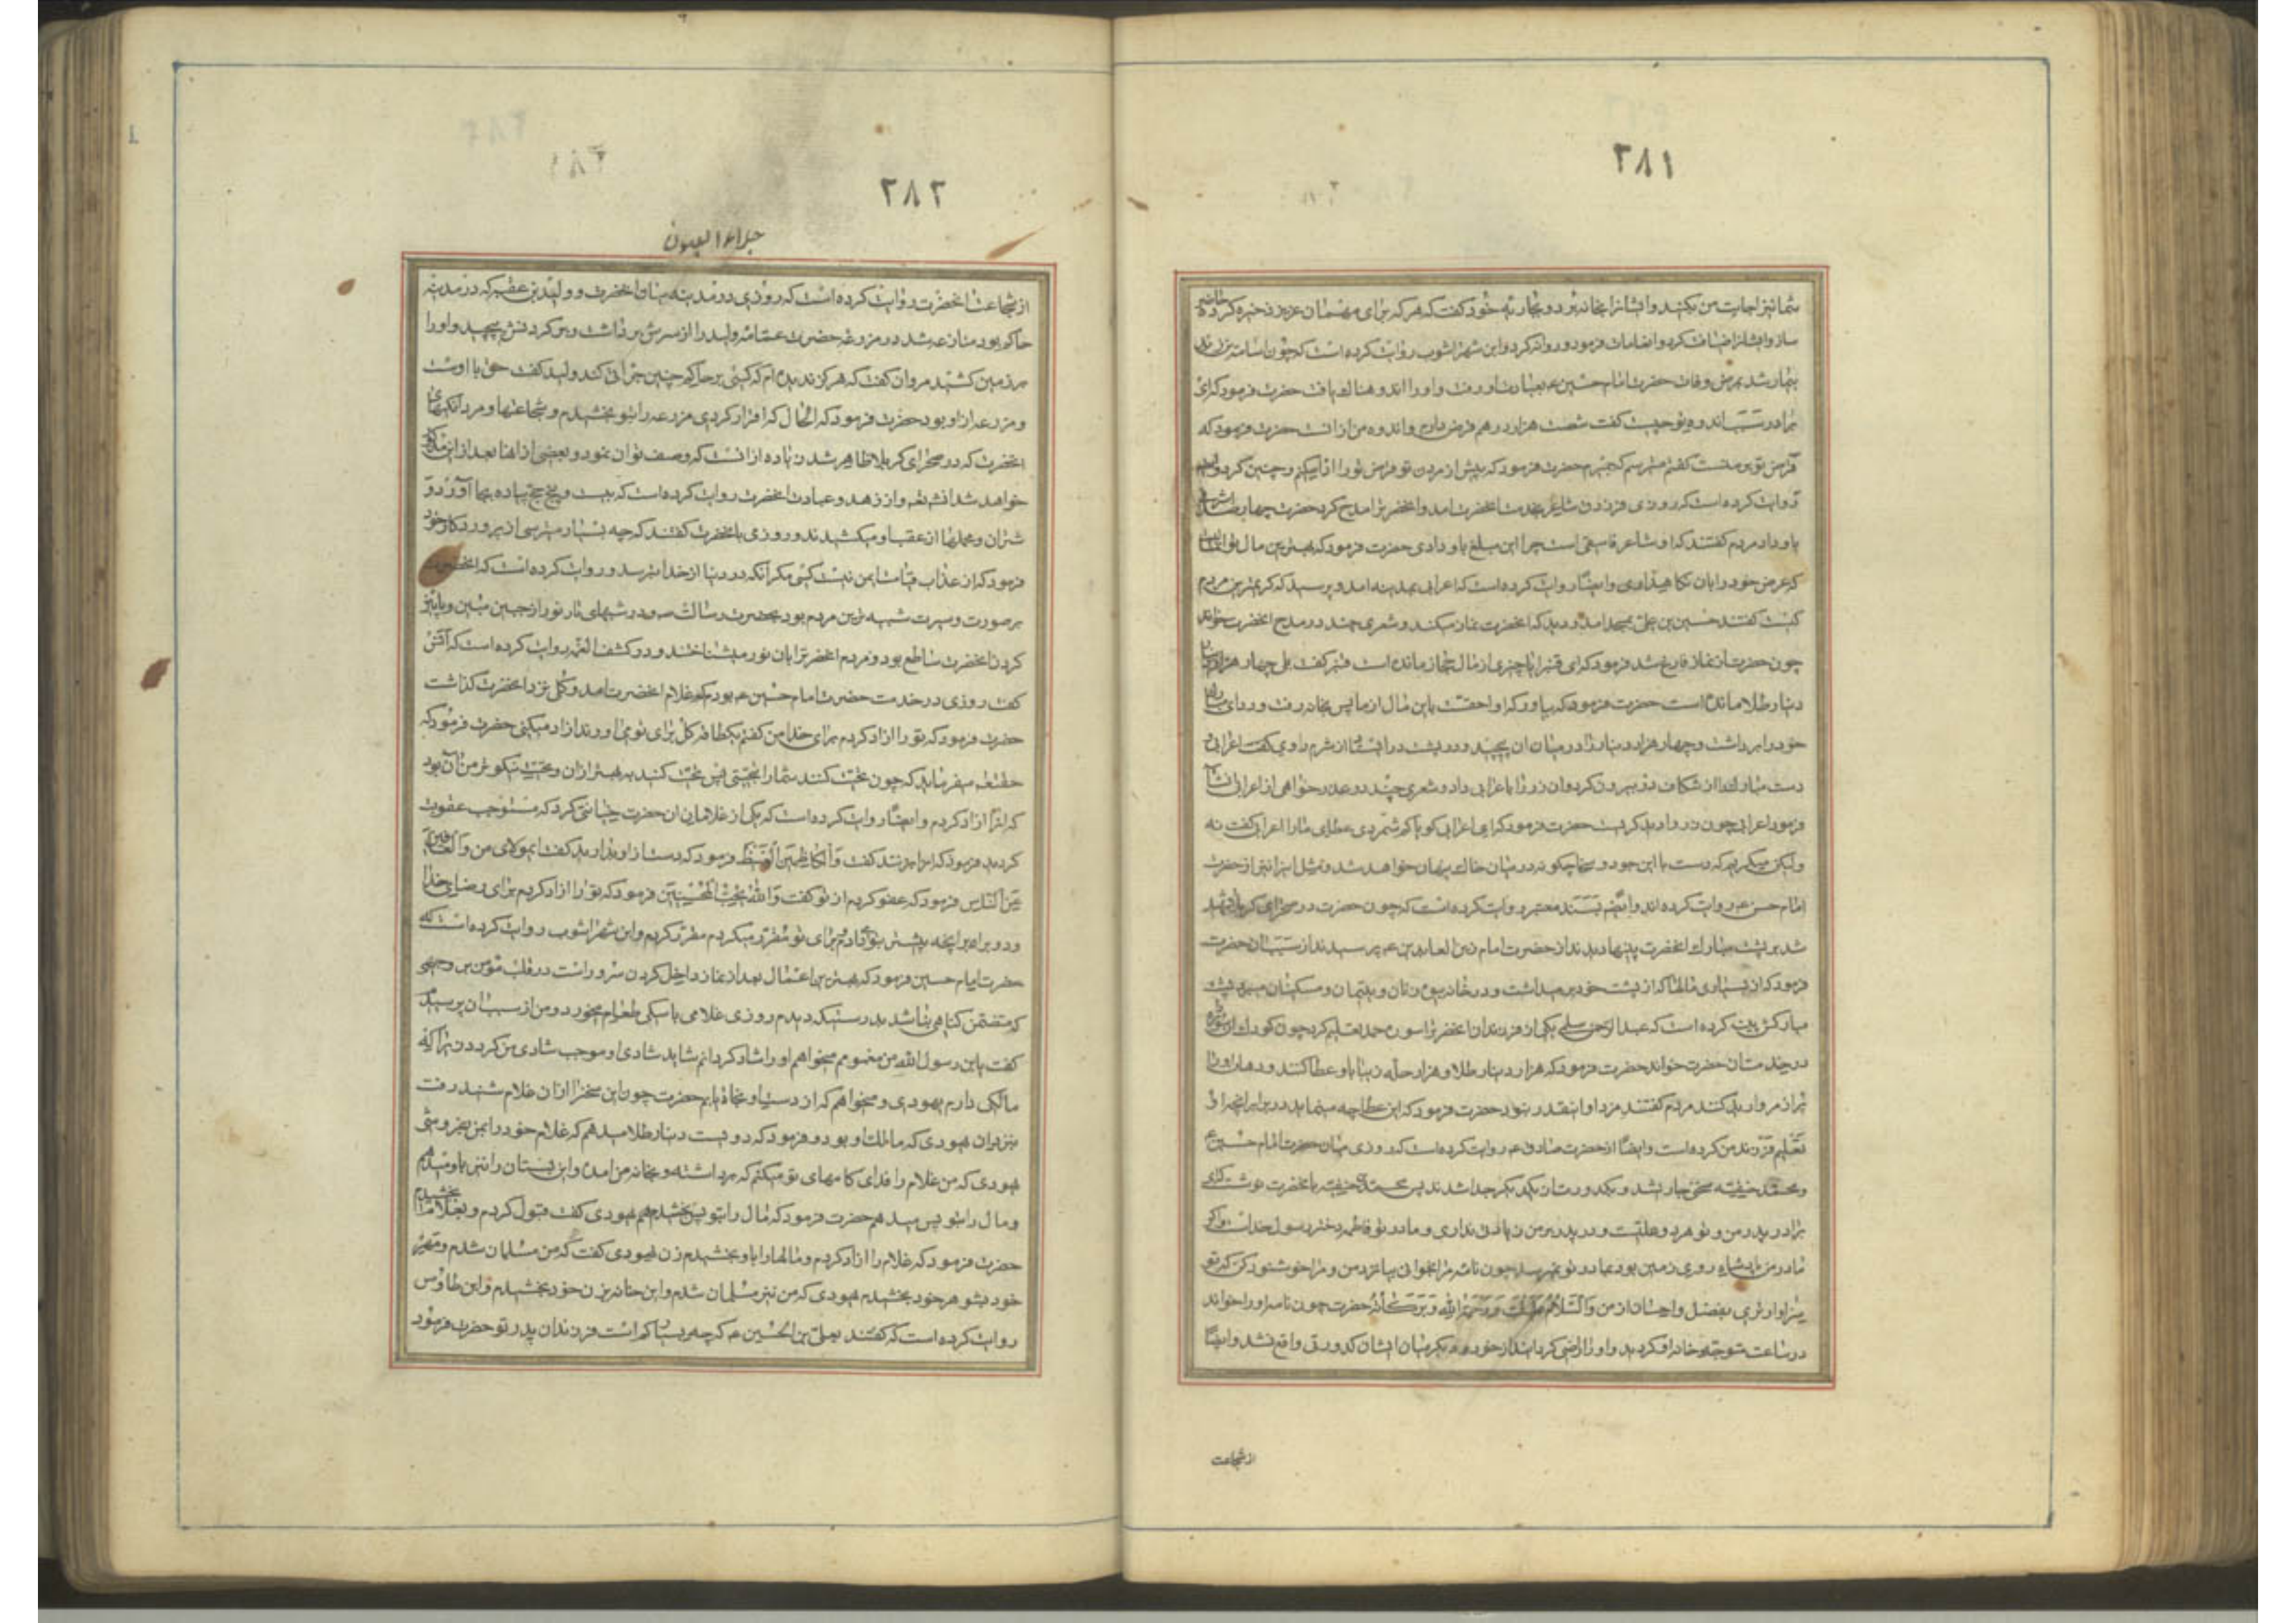 ٢٨١
شما نیز اجابت من بکنید و ایشانرا بخانه برد و بجاریه خود گفت که هر که برای مهمانان عزیز ذخیره کرده حاضر
ساز و ایشانرا ضیافت کرد و انعامات فرمود و روانه کرد و ابن شهر اشوب روایت کرده است که چون اسامه بن زید
بیمار شد بمرض وفات حضرت امام حسین ع بعیادت او رفت و او را اندوهناک یافت حضرت فرمود که ای
برادر سبب اندوه تو چیست گفت شصت هزار درهم قرض دارم و اندوه من از انست حضرت فرمود که
قرض تو بر منست گفت میترسم که بمیرم حضرت فرمود که پیش از مردن تو قرض تو را ادا میکنم و چنین کرد و ایضا
روایت کرده است که روزی فرزدق شاعر بخدمت انحضرت امد و انحضرترا مدح کرد حضرت چهارصد اشرفی
باو داد مردم گفتند که او شاعر فاسقی است چرا این مبلغ باو دادی حضرت فرمود که بهترین مال تو انست
که عرض خود را بان نگاهداری و ایضا روایت کرده است که اعرابی بمدینه امد و پرسید که کریمترین مردم
کیست گفتند حسین بن علی بمسجد امد و دید که انحضرت نماز میکند و شعری چند در مدح انحضرت خواند
چون حضرت از نماز فارغ شد فرمود که ای قنبر ایا چیزی از مال حجاز مانده است قنبر گفت بلی چهار هزار
دینار طلا مانده است حضرت فرمود که بیاور که او احقست باین مال از ما پس بخانه رفت و ردای مبارک
خود را برداشت و چهار هزار دینار را در میان ان پیچید و در پشت در ایستاد از شرم روی اعرابی و
دست مبارک را از شکاف در بیرون کرد و ان زر را باعرابی داد و شعری چند در عذر خواهی از اعرابی انشا
فرمود اعرابی چون زر را دید گریست حضرت فرمود که ای اعرابی گویا کم شمردی عطای ما را اعرابی گفت نه
ولیکن میگریم که دست با این جود و سخا چگونه در میان خاک پنهان خواهد شد و مثل اینرا نیز از حضرت
امام حسن ع روایت کرده اند و ایضا بسند معتبر روایت کرده است که چون حضرت در صحرای کربلا شهید
شد بر پشت مبارک انحضرت پینها دیدند از حضرت امام زین العابدین ع پرسیدند از سبب ان حضرت
فرمود که از بسیاری مالها که از پشت خود بر میداشت و در خانه بیوه زنان و یتیمان و مسکینان میبرد پشت
مبارکش پین کرده است که عبدالرحمن سلمی بیکی از فرزندان انحضرترا سوره حمد تعلیم کرد چون کودک ان سوره
در خدمت ان حضرت خواند حضرت فرمود که هزار دینار طلا و هزار حله زیبا باو عطا کنند و دهان او را
پر از مروارید کنند مردم گفتند مزد او اینقدر نبود حضرت فرمود که این عطا چه مینماید در برابر انچه او
تعلیم فرزند من کرده است و ایضا از حضرت صادق ع روایت کرده است که روزی میان حضرت امام حسین ع
و محمد حنفیه سخنی جاری شد و بکدورت از یکدیگر جدا شدند پس محمد حنفیه بانحضرت نوشت که ای
برادر پدر من و تو هر دو علیست و در پدر بر من زیادتی نداری و مادر تو فاطمه دختر رسول خداست و اگر
مادر من پادشاه روی زمین بود بمادر تو نمیرسید چون نامه مرا بخوانی بیا نزد من و مرا خوشنود کن که تو
سزاوارتری بفضل و احسان از من وَالسَّلامُ عَلَیْكَ وَرَحْمَةُ اللّهِ وَبَرَكاتُهُ حضرت چون نامه او را خواند
در ساعت متوجه خانه او گردید و او را راضی گردانید و از خود دیگر میان ایشان کدورتی واقع نشد و ایضا
از شجاعت
٢٨٢
جلاء العیون
از شجاعت انحضرت روایت کرده است که روزی در مدینه میان انحضرت و ولید بن عقبه که در مدینه
حاکم بود منازعه شد در مزرعه حضرت عمامه ولید را از سرش برداشت و بر گردنش پیچید و او را
بر زمین کشید مروان گفت که هرگز ندیده ام که کسی بر حاکم چنین جرأتی کند ولید گفت حق با اوست
و مزرعه از او بود حضرت فرمود که الحال که اقرار کردی مزرعه را بتو بخشیدم و شجاعتها و مردانگیهای
انحضرت که در صحرای کربلا ظاهر شد زیاده از انست که وصف توان نمود و بعضی از انها بعد از این مذکور
خواهد شد انشاءالله و از زهد و عبادت انحضرت روایت کرده است که بیست و پنج حج پیاده بجا اورد و
شتران و محملها از عقب او میکشیدند و روزی بانحضرت گفتند که چه بسیار میترسی از پروردگار خود
فرمود که از عذاب قیامت ایمن نیست کسی مگر آنکه در دنیا از خدا بترسد و روایت کرده است که انحضرت
بر صورت و سیرت شبیه ترین مردم بود بحضرت رسالت ص و در شبهای تار نور از جبین مبین و پائین
گردن انحضرت ساطع بود و مردم انحضرترا بان نور میشناختند و در کشف الغمه روایت کرده است که انس
گفت روزی در خدمت حضرت امام حسین ع بودم که غلام انحضرت امد و گلی نزد انحضرت گذاشت
حضرت فرمود که تو را ازاد کردم برای خدا من گفتم یکطاقه گل برای تو می اورند ازاد میکنی حضرت فرمود که
حقتعالی میفرماید که چون تحیت کنند شما را بتحیتی پس تحیت کنید به بهتر از ان و تحیت نیکوتر من ان بود
که او را ازاد کردم و ایضا روایت کرده است که یکی از غلامان ان حضرت خیانتی کرد که مستوجب عقوبت
گردید فرمود که او را بزنند گفت وَالْكاظِمینَ الْغَیْظَ فرمود که دست از او بدارید گفت ایمولای من وَالْعافینَ
عَنِ النّاسِ فرمود که عفو کردم از تو گفت وَاللّهُ یُحِبُّ الْمُحْسِنینَ فرمود که تو را ازاد کردم برای رضای خدا
و دو برابر انچه پیشتر بتو میدادم برای تو مقرر کردم و ابن شهر اشوب روایت کرده است که
حضرت امام حسین فرمود که بهترین اعمال بعد از نماز داخل کردن سرور است در قلب مؤمن بر وجهی
که متضمن گناهی نباشد بدرستیکه دیدم روزی غلامی با سگی طعام میخورد و من از سبب ان پرسیدم
گفت یابن رسول الله من مغمومم میخواهم او را شاد گردانم شاید شادی او موجب شادی من گردد زیرا که
مالکی دارم یهودی و میخواهم که از دست او نجاة یابم حضرت چون این سخن را از ان غلام شنید رفت
بنزد ان یهودی که مالک او بود و فرمود که دویست دینار طلا میدهم که غلام خود را بمن بفروشی
یهودی گفت من غلام را فدای گامهای تو میکنم که برداشته و بخانه من امدی و این بستان را نیز باو میدهم
و مال را بتو پس میدهم حضرت فرمود که مال را بتو بخشیدم یهودی گفت قبول کردم و بغلام بخشیدم
حضرت فرمود که غلام را ازاد کردم و مالها را باو بخشیدم زن یهودی گفت که من مسلمان شدم و مهر
خود بشوهر خود بخشیدم یهودی گفت من نیز مسلمان شدم و این خانه بزن خود بخشیدم و ابن طاوس
روایت کرده است که گفتند بعلی بن الحسین ع که چه بسیار کم است فرزندان پدر تو حضرت فرمود